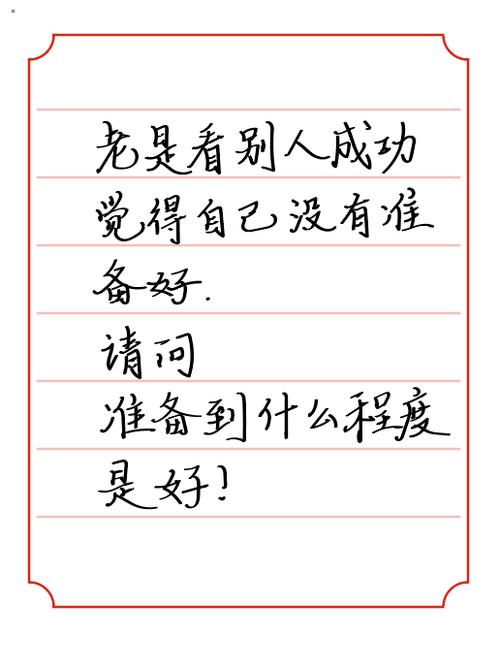 老是看别人成功
觉得自己没有准
备好.
请问
准备到什么程度
是好!